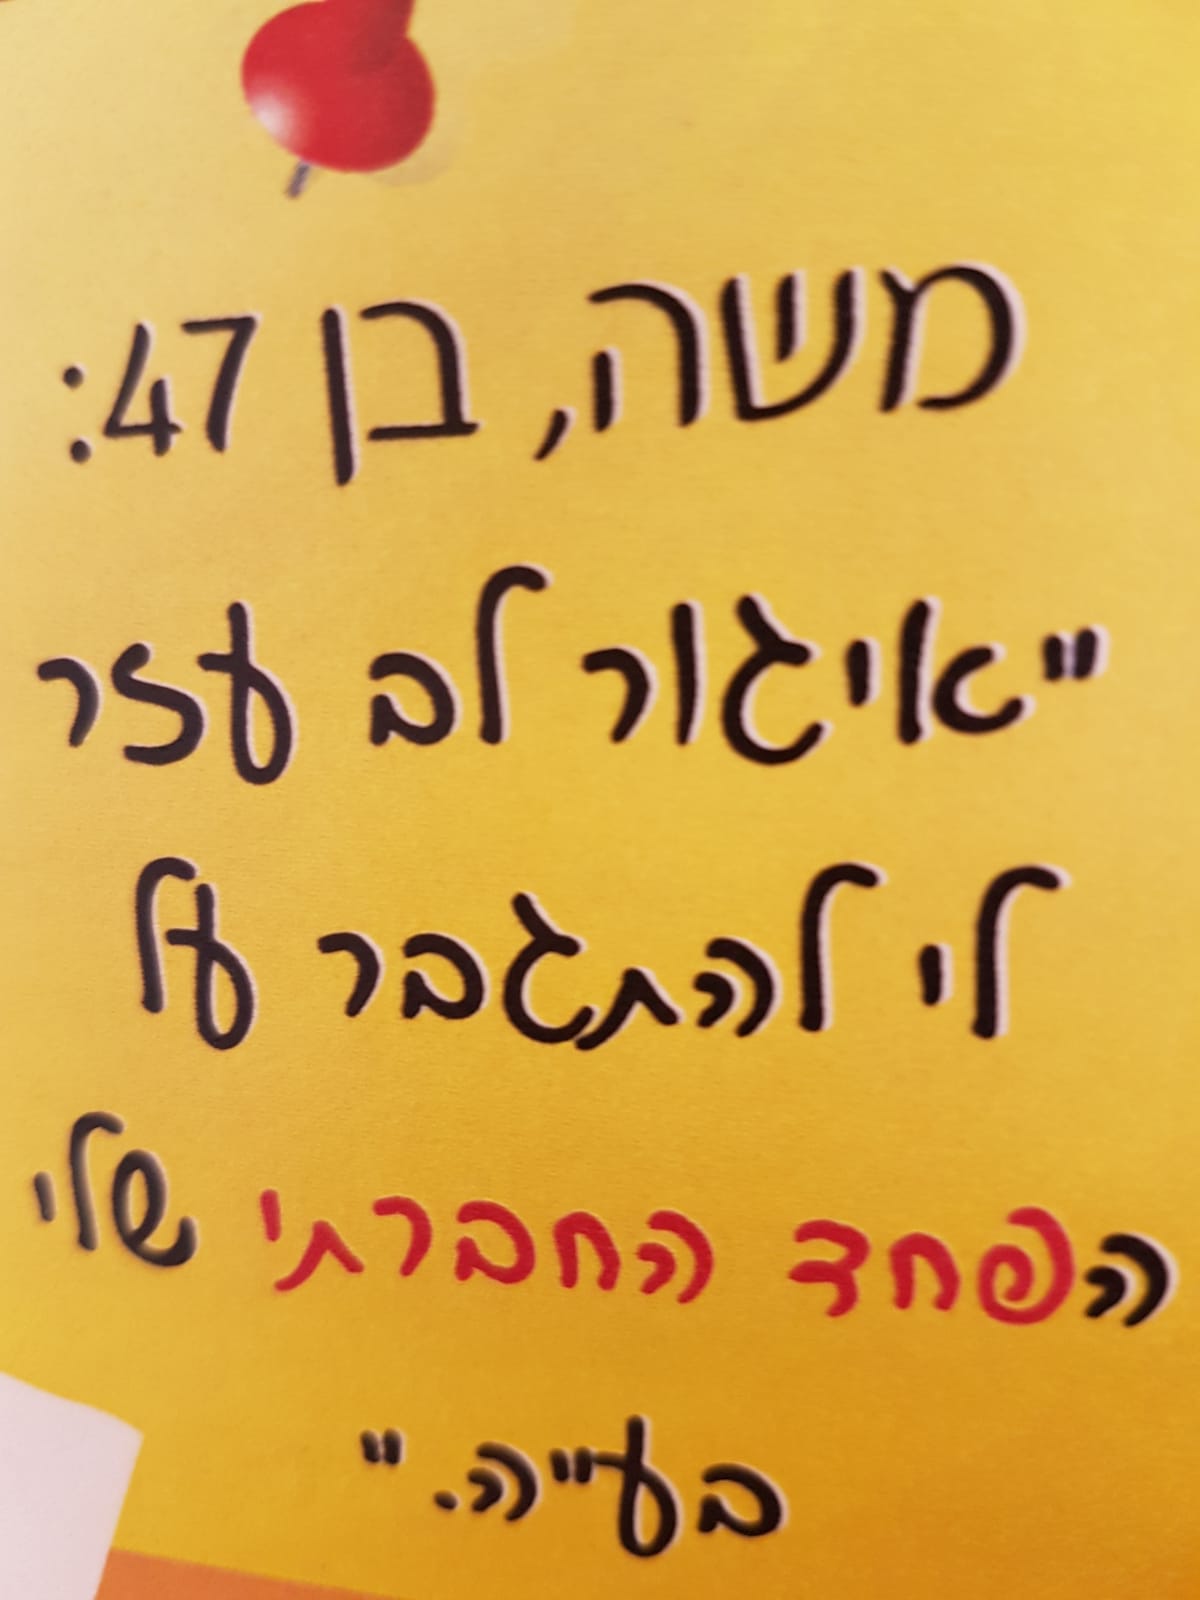 משה, בן 47:
"איגור לב עזר
לי להתגבר על
הפחד החברתי שלי
בע"ה."